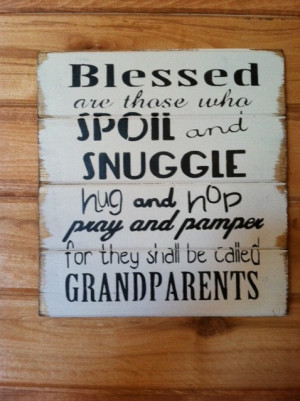 Blessed
are those who
SPOIL and
SNUGGLE
hug and hop
pray and pamper
for they shall be called
GRANDPARENTS